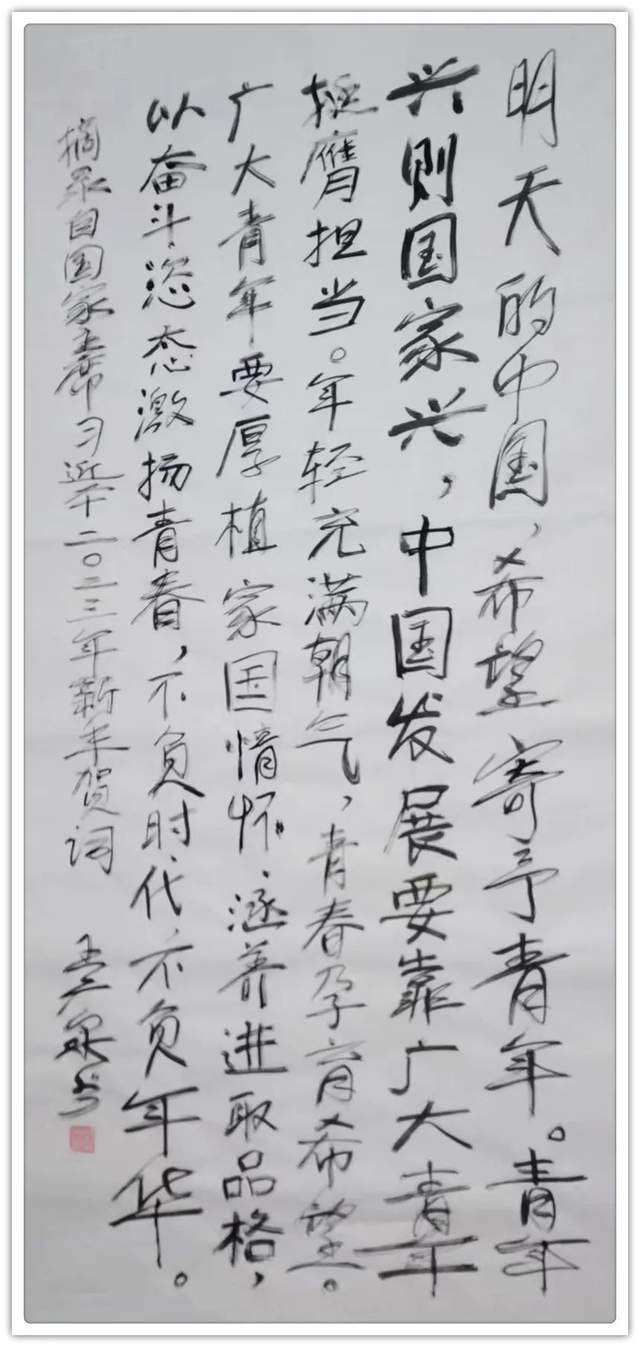 明天的中国,希望寄予青年。青年
兴则国家兴,中国发展要靠广大青年
挺膺担当。年轻充满朝气,青春孕育希望。
广大青年要厚植家国情怀、涵养进取品格,
以奋斗恣态激扬青春,不负时代,不负年华。
摘录自国家主席习近平二〇二三年新年贺词
书